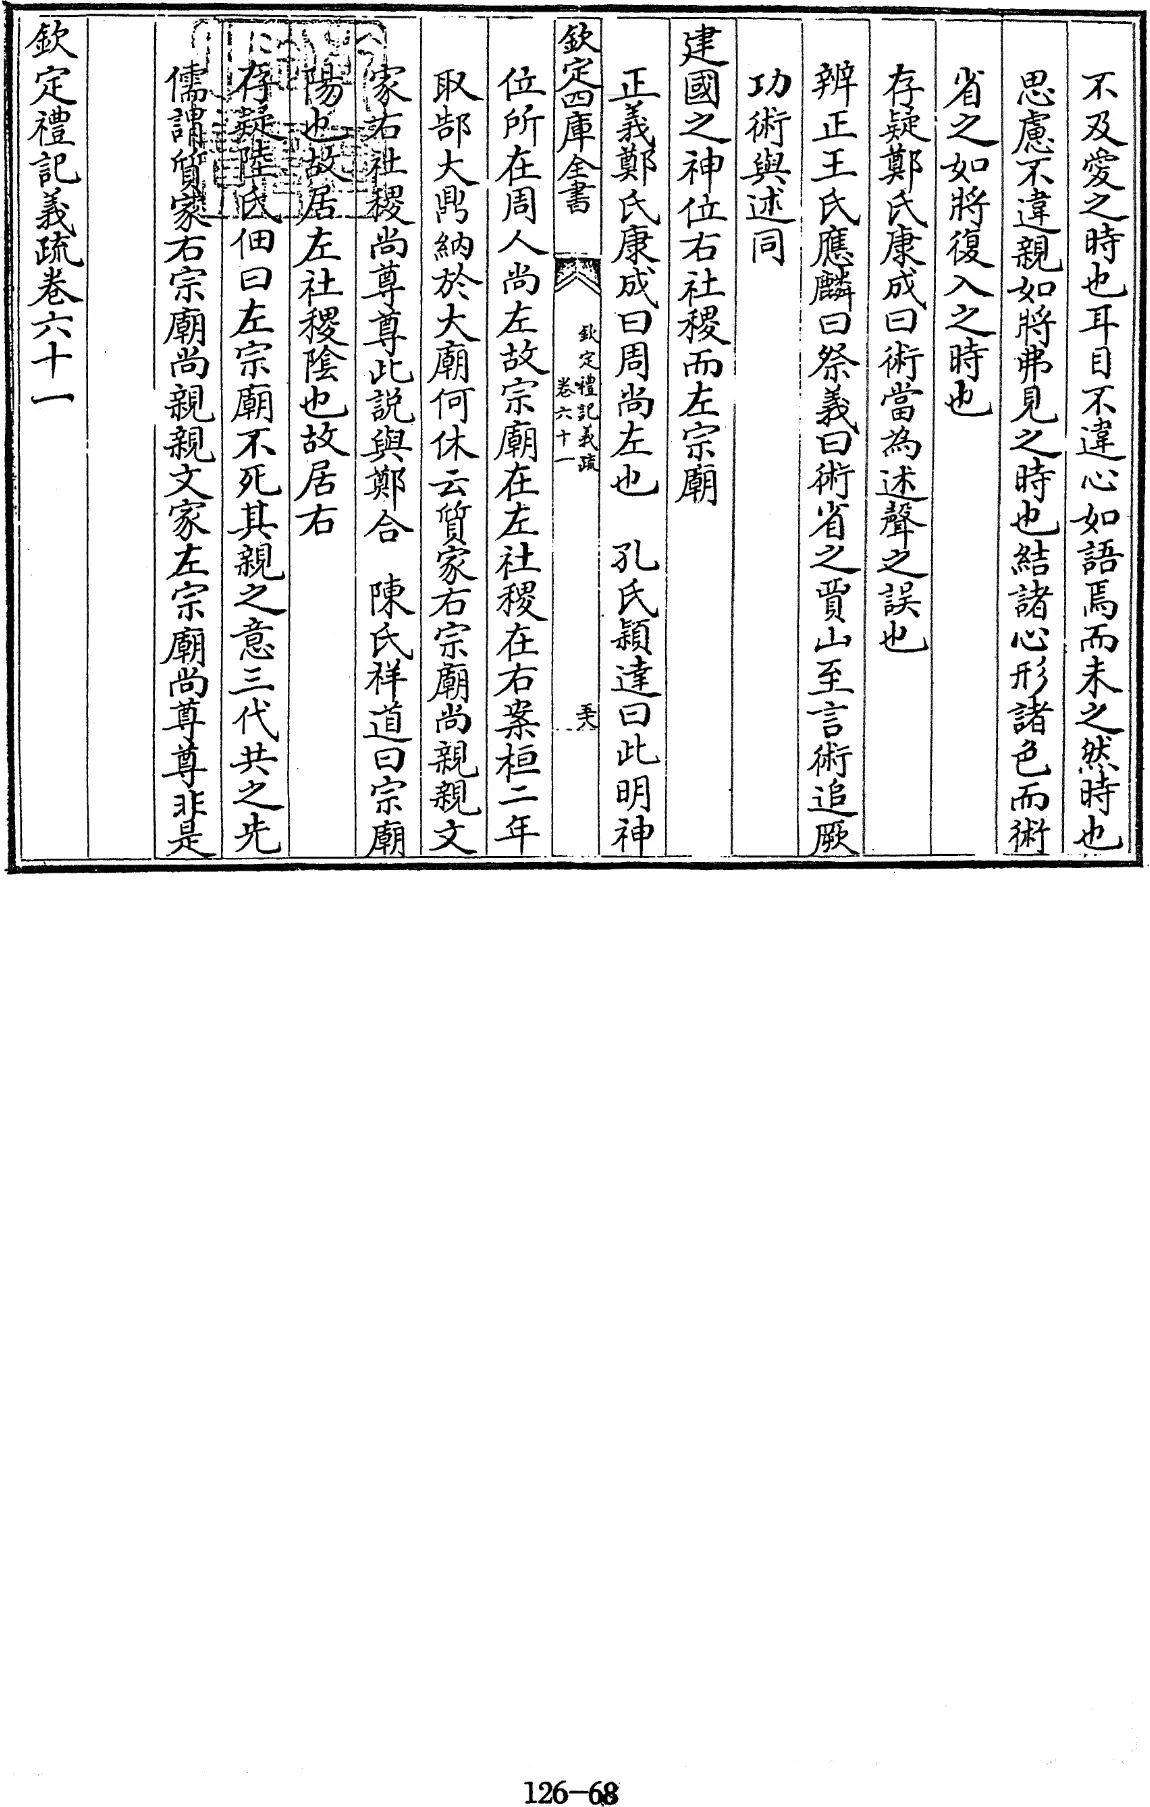 不及愛之時也耳目不違心如語焉而未之然時也
思慮不違親如將弗見之時也結諸心形諸色而術
省之如將復入之時也
存疑鄭氏康成曰術當為述聲之誤也
辨正王氏應麟曰祭義曰術省之賈山至言術追厥
功術與述同
建國之神位右社稷而左宗廟
正義鄭氏康成曰周尚左也 孔氏穎達曰此明神
欽定四庫全書
欽定禮記義疏
卷六十一
位所在周人尚左故宗廟在左社稷在右案桓二年
取郜大鼎納於大廟何休云質家右宗廟尚親親文
家右社稷尚尊尊此説與鄭合 陳氏祥道曰宗廟
陽也故居左社稷陰也故居右
存疑陸氏佃曰左宗廟不死其親之意三代共之先
儒謂質家右宗廟尚親親文家左宗廟尚尊尊非是
欽定禮記義疏卷六十一
126-68